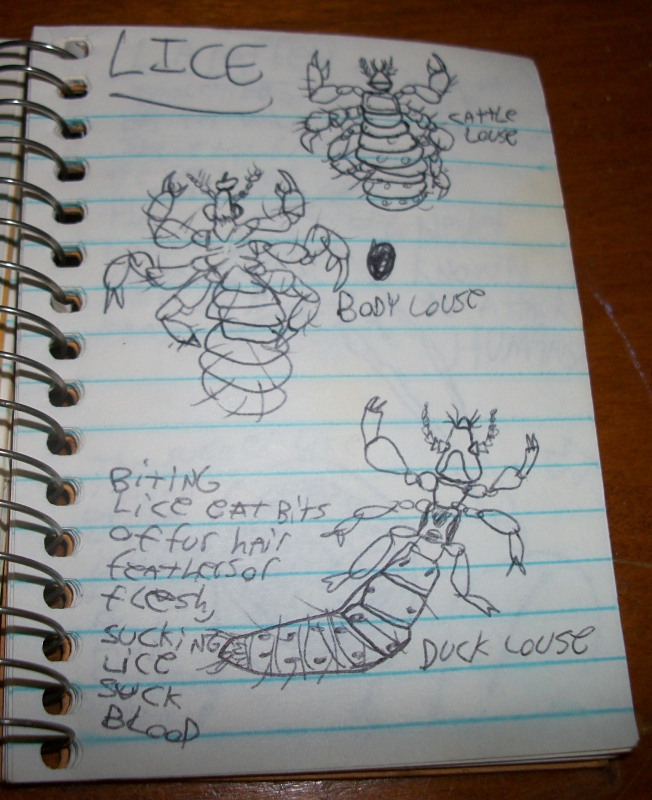 LICE
CATTLE
LOUSE
BODY LOUSE
BITING
LICE EAT BITS
OF fur hAir
feathers or
flesh,
SUCKING
LICE
SUCK
BLOOD
DUCK LOUSE